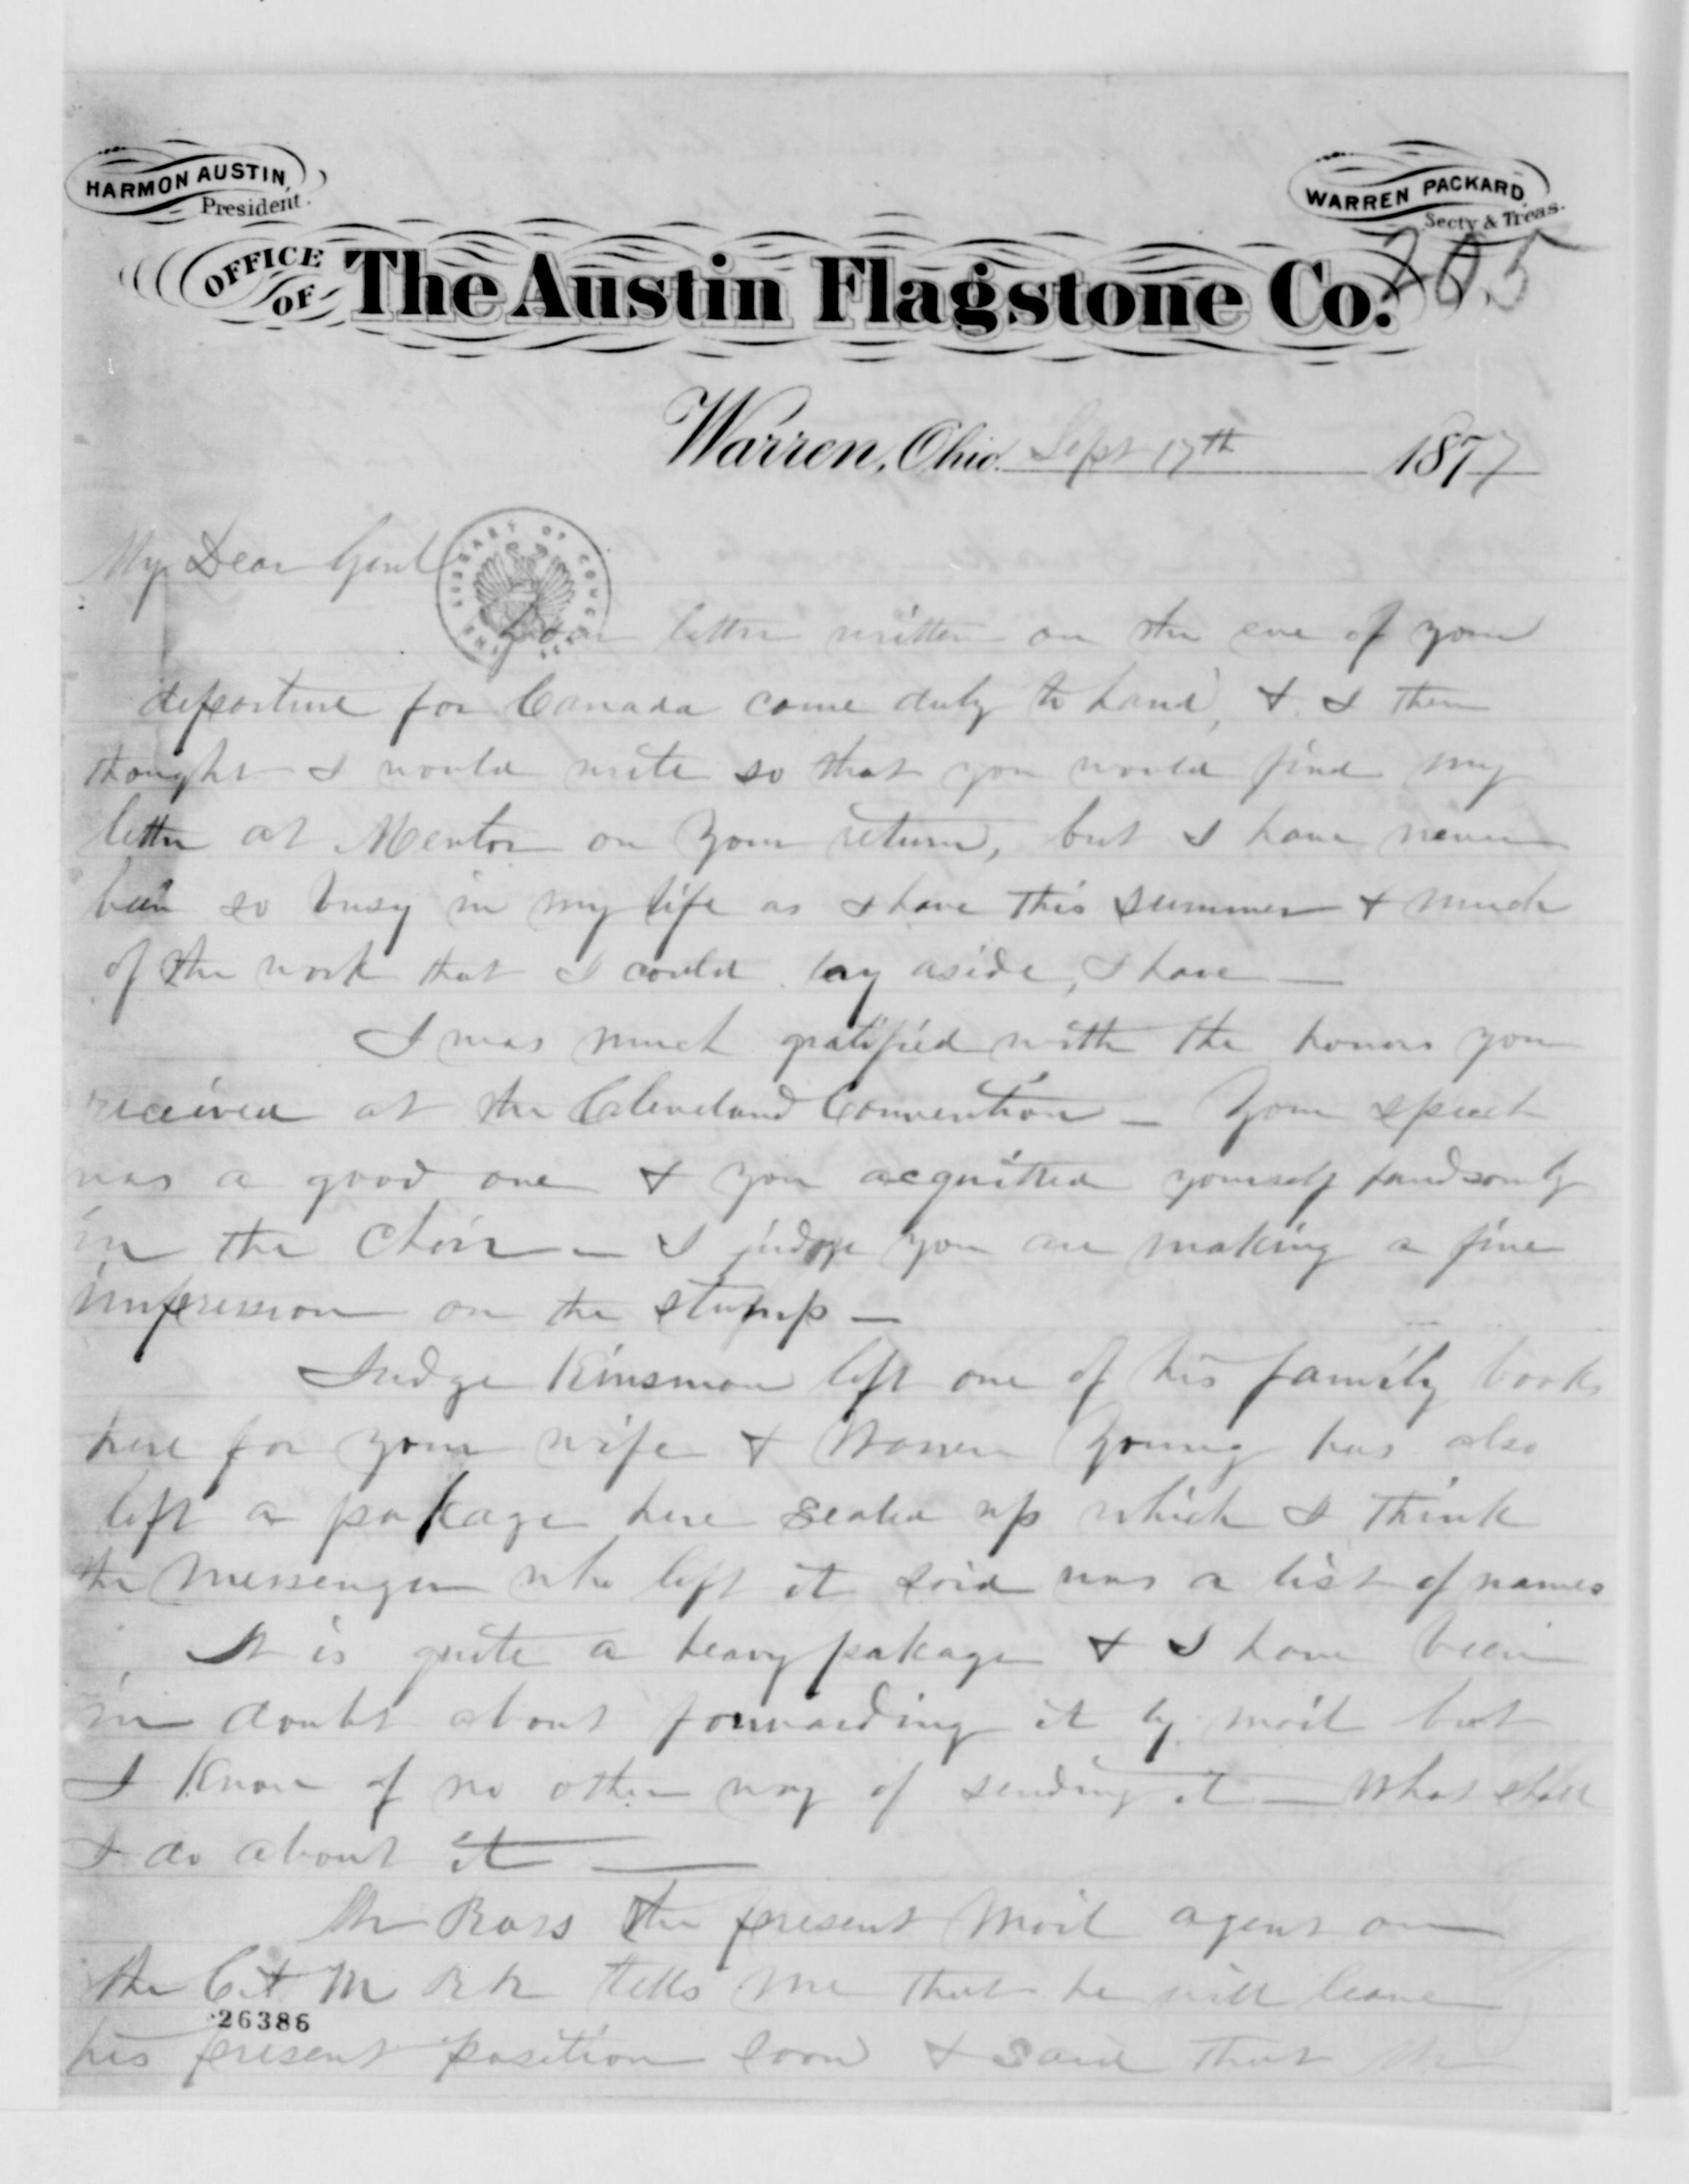 HARMON AUSTIN,
President.
WARREN PACKARD,
Secty & Treas.
205
OFFICE OF The Austin Flagstone Co.
Warren, Ohio. Sept 17th 1877
My Dear Genl
Your letter written on the eve of your
departure for Canada came duly to hand, & I then
thought I would write so that you would find my
letter at Mentor on your return, but I have never
been so busy in my life as I have this summer & much
of the work that I could lay aside, I have —
I was much gratified with the honors you
received at the Cleveland Convention — Your speech
was a good one & you acquitted yourself handsomly
in the Chair — I judge you are making a fine
impression on the stump —
Judge Kinsman left one of his family books
here for your wife & Warren Young has also
left a pakage here sealed up which I think
the messenger who left it said was a list of names
It is quite a heavy pakage & I have been
in doubt about forwarding it by mail but
I know of no other way of sending it — What shall
I do about it —
Mr Ross the present Mail agent on
the C & M RR tells me that he will leave
26386
his present position soon & said that Mr